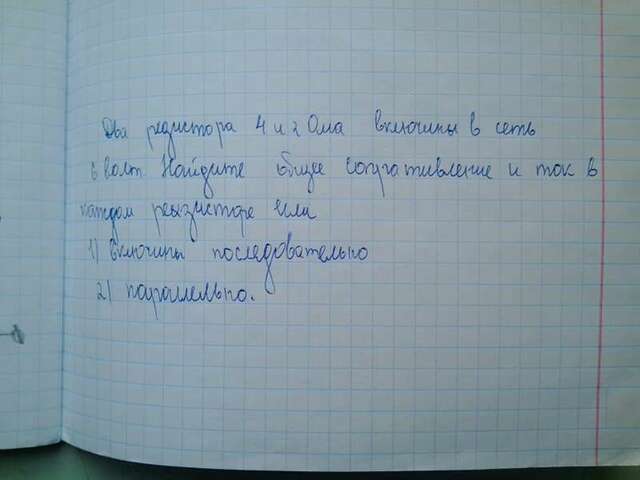 Два резистора 4 и 2 Ома включины в сеть
6 волт. Найдите общее сопративление и ток в
каждом резызсторе если
1) включины последовательно
2) параллельно.